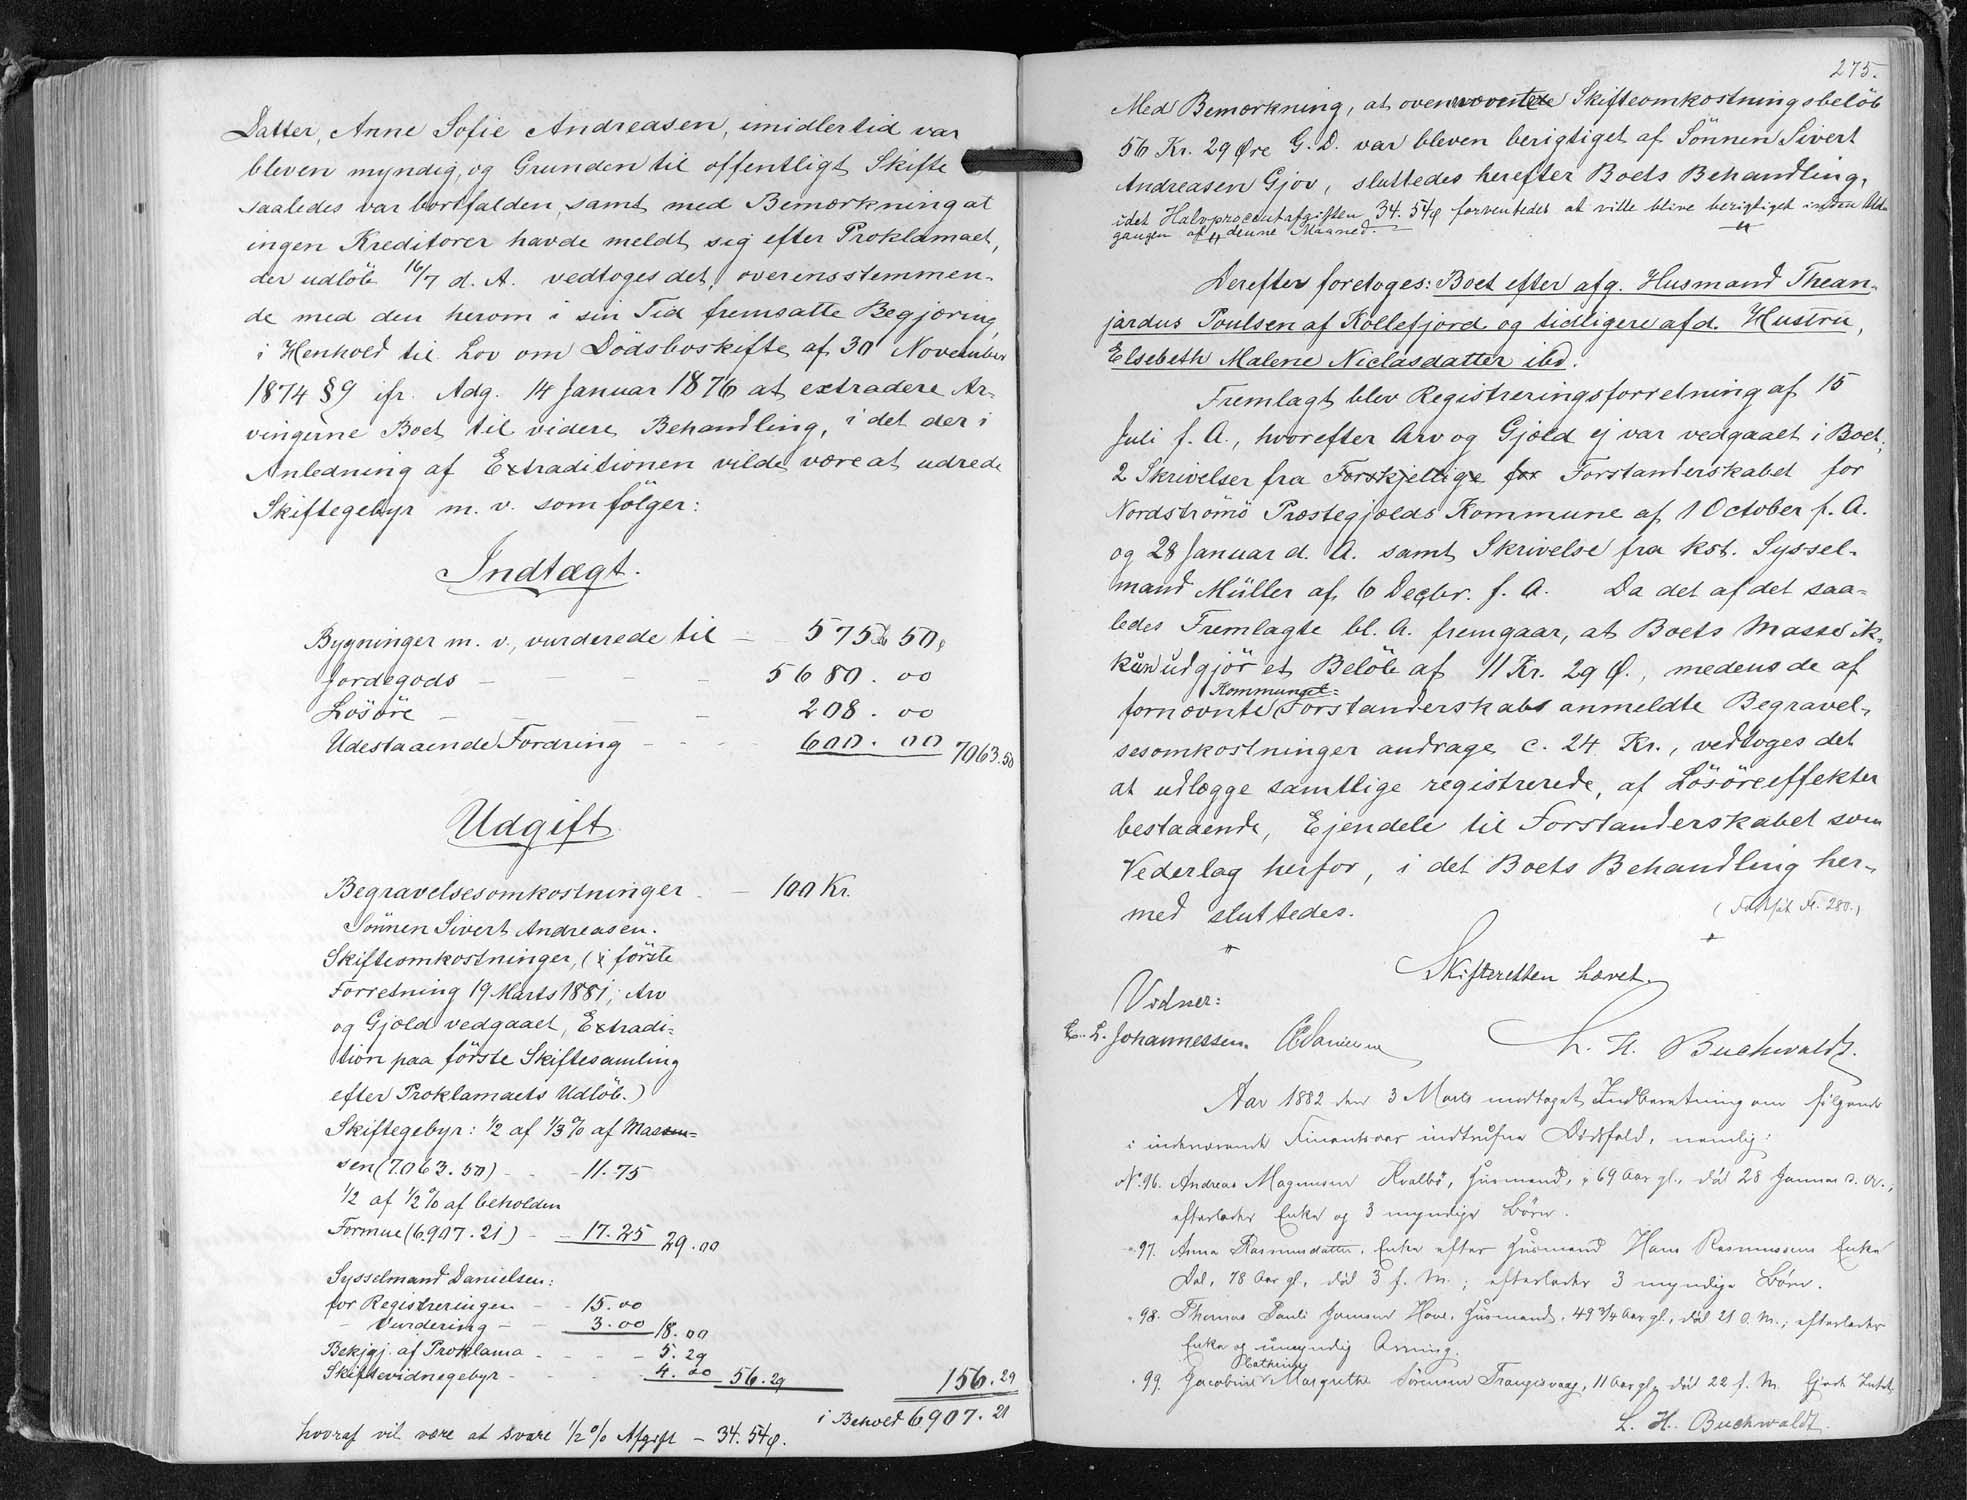 Datter, Anne Sofie Andreasen, imidlertid var
bleven myndig, og Grunden til offentligt Skifte
saaledes var bortfalden, samt med Bemærkning at
ingen Kreditorer havde meldt sig efter Proklamaet,
der udløb 16/7 d. A. vedtoges det, overensstemmen-
de med den herom i sin Tid fremsatte Begjæring,
i Henhold til Lov om Dødsboskifte af 30 November
1874 § 9 jfr. Adg. 14 Januar 1876 at extradere Ar-
vingerne Boet til videre Behandling, i det der i
Anledning af Extraditionen vilde være at udrede
Skiftegebyr m. v. som følger:
Indtægt.
Bygninger m. v., vurderede til — 575 50
Jordegods — 5680. 00
Løsøre — 208. 00
Udestaaende Fordring — 600. 00 7063.50
Udgift
Begravelsesomkostninger — 100 Kr.
Sönnen Sivert Andreasen.
Skifteomkostninger, ( första
Forretning 19 Marts 1881; Arv
og Gjæld vedgaaet, Extradi-
tion paa første Skiftesamling
efter Proklamaets Udløb.)
Skiftegebyr: 1/2 af 1/3 % af Mas
sen (7063.50) — 11.75
1/2 af 1/2 % af beholden
Formue (6907.21) — 17.25 29.00
Sysselmand Danielsen:
for Registreringen — 15.00
" Vurdering — 3.00 18.00
Bekjgj. af Proklama — 5.29
Skiftevidnegebyr — 4.00 56.29 156.29
i Behold 6907.21
hvoraf vil være at svare 1/2 % Afgift — 34.54 ø.
275.
Med Bemærkning, at Skifteomkostningsbeløb
56 Kr. 29 Øre G. D. var bleven berigtiget af Sönnen Sivert
Andreasen Gjov, sluttedes herefter Boets Behandling,
idet Halvprocentafgiften 34.54 ø forventedes at ville blive berigtiget inden Ud-
gangen af denne Maaned.
Derefter foretoges: Boet efter afg. Husmand Thean-
jardus Poulsen af Kollefjord og tidligere afd. Hustru,
Elsebeth Malene Niclasdatter ibd.
Fremlagt blev Registreringsforretning af 15
Juli f. A., hvorefter Arv og Gjæld ej var vedgaaet i Boet,
2 Skrivelser fra Forskjellige for Forstanderskabet for
Nordströmö Præstegjælds Kommune af 1 October f. A.
og 28 Januar d. A. samt Skrivelse fra kst. Syssel-
mand Müller af 6 Decbr. f. A. Da det af det saa-
ledes Fremlagte bl. A. fremgaar, at Boets Masse ik-
kun udgjør et Beløb af 11 Kr. 29 Ø., medens de af
fornævnte Kommunens Forstanderskab anmeldte Begravel-
sesomkostninger andrage c. 24 Kr., vedtoges det
at udlægge samtlige registrerede, af Løsøreeffekter
bestaaende, Ejendele til Forstanderskabet som
Vederlag herfor, i det Boets Behandling her-
med sluttedes.
(Fortsat Fl. 280.)
Skifteretten hævet.
Vidner:
L. Johannessen. Danielsen L. H. Buchwaldt.
Aar 1882 den 3 Marts modtaget Indberetning om følgende
i indeværende Finantsaar indtrufne Dødsfald, nemlig:
No. 96. Andreas Magnusen Kvalbø, Huusmand, 69 Aar gl., död 28 Januar d. A.,
efterlader Enke og 3 myndige Börn.
" 97. Anna Rasmusdatter, Enke efter Huusmand Hans Rasmussen Enke
Dal, 78 Aar gl., död 3 f. M.; efterlader 3 myndige Börn.
" 98. Thomas Pauli Jensen Hove, Huusmand, 49 3/4 Aar gl., död 21 d. M.; efterlader
Enke og umyndig Arving.
" 99. Jacobine Cathrine Margrethe Sörensen Trangisvaag, 11 Aar gl., död 22 f. M.
L. H. Buchwaldt.